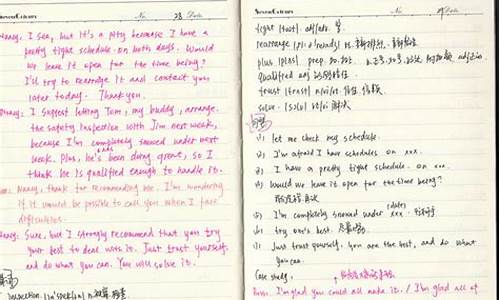 SevenColours No. 28 Date
Nancy, I see, but it's a pity because I have a
pretty tight schedule on both days. Would
we leave it open for the time being?
I'll try to rearrange it and contact you
later today. Thank you.
I suggest letting Tom, my buddy, arrange
the safety inspection with Jim next week,
because I'm completely snowed under next
week. Plus, he's been doing great, so I
think he is qualified enough to handle it.
Nancy, thank for recommending me. I'm wondering
if it would be possible to call you when I face
difficulties.
Nancy: Sure, but I strongly recommend that you try
your best to deal with it. Just trust yourself.
and do what you can. You will solve it.
SevenColours No. Date
tight [taɪt] adj/adv. 紧
rearrange
plus [plʌs] prep.
qualified adj
trust [trʌst] n/vi/vt
solve. [sɒlv] vt/vi 解决
(1) let me check my schedule.
(2) I'm afraid I have schedules on xxx.
(3) I have a pretty tight schedule. on xxx.
(4) Would we leave it open for the time being?
(5) I'm completely snowed under xxx.
(date)
(6) try one's best.
(7) Just trust yourself. You are the best, and do what
you can.
Case study.
Boss: I'm glad you could all make it. / I'm glad all of